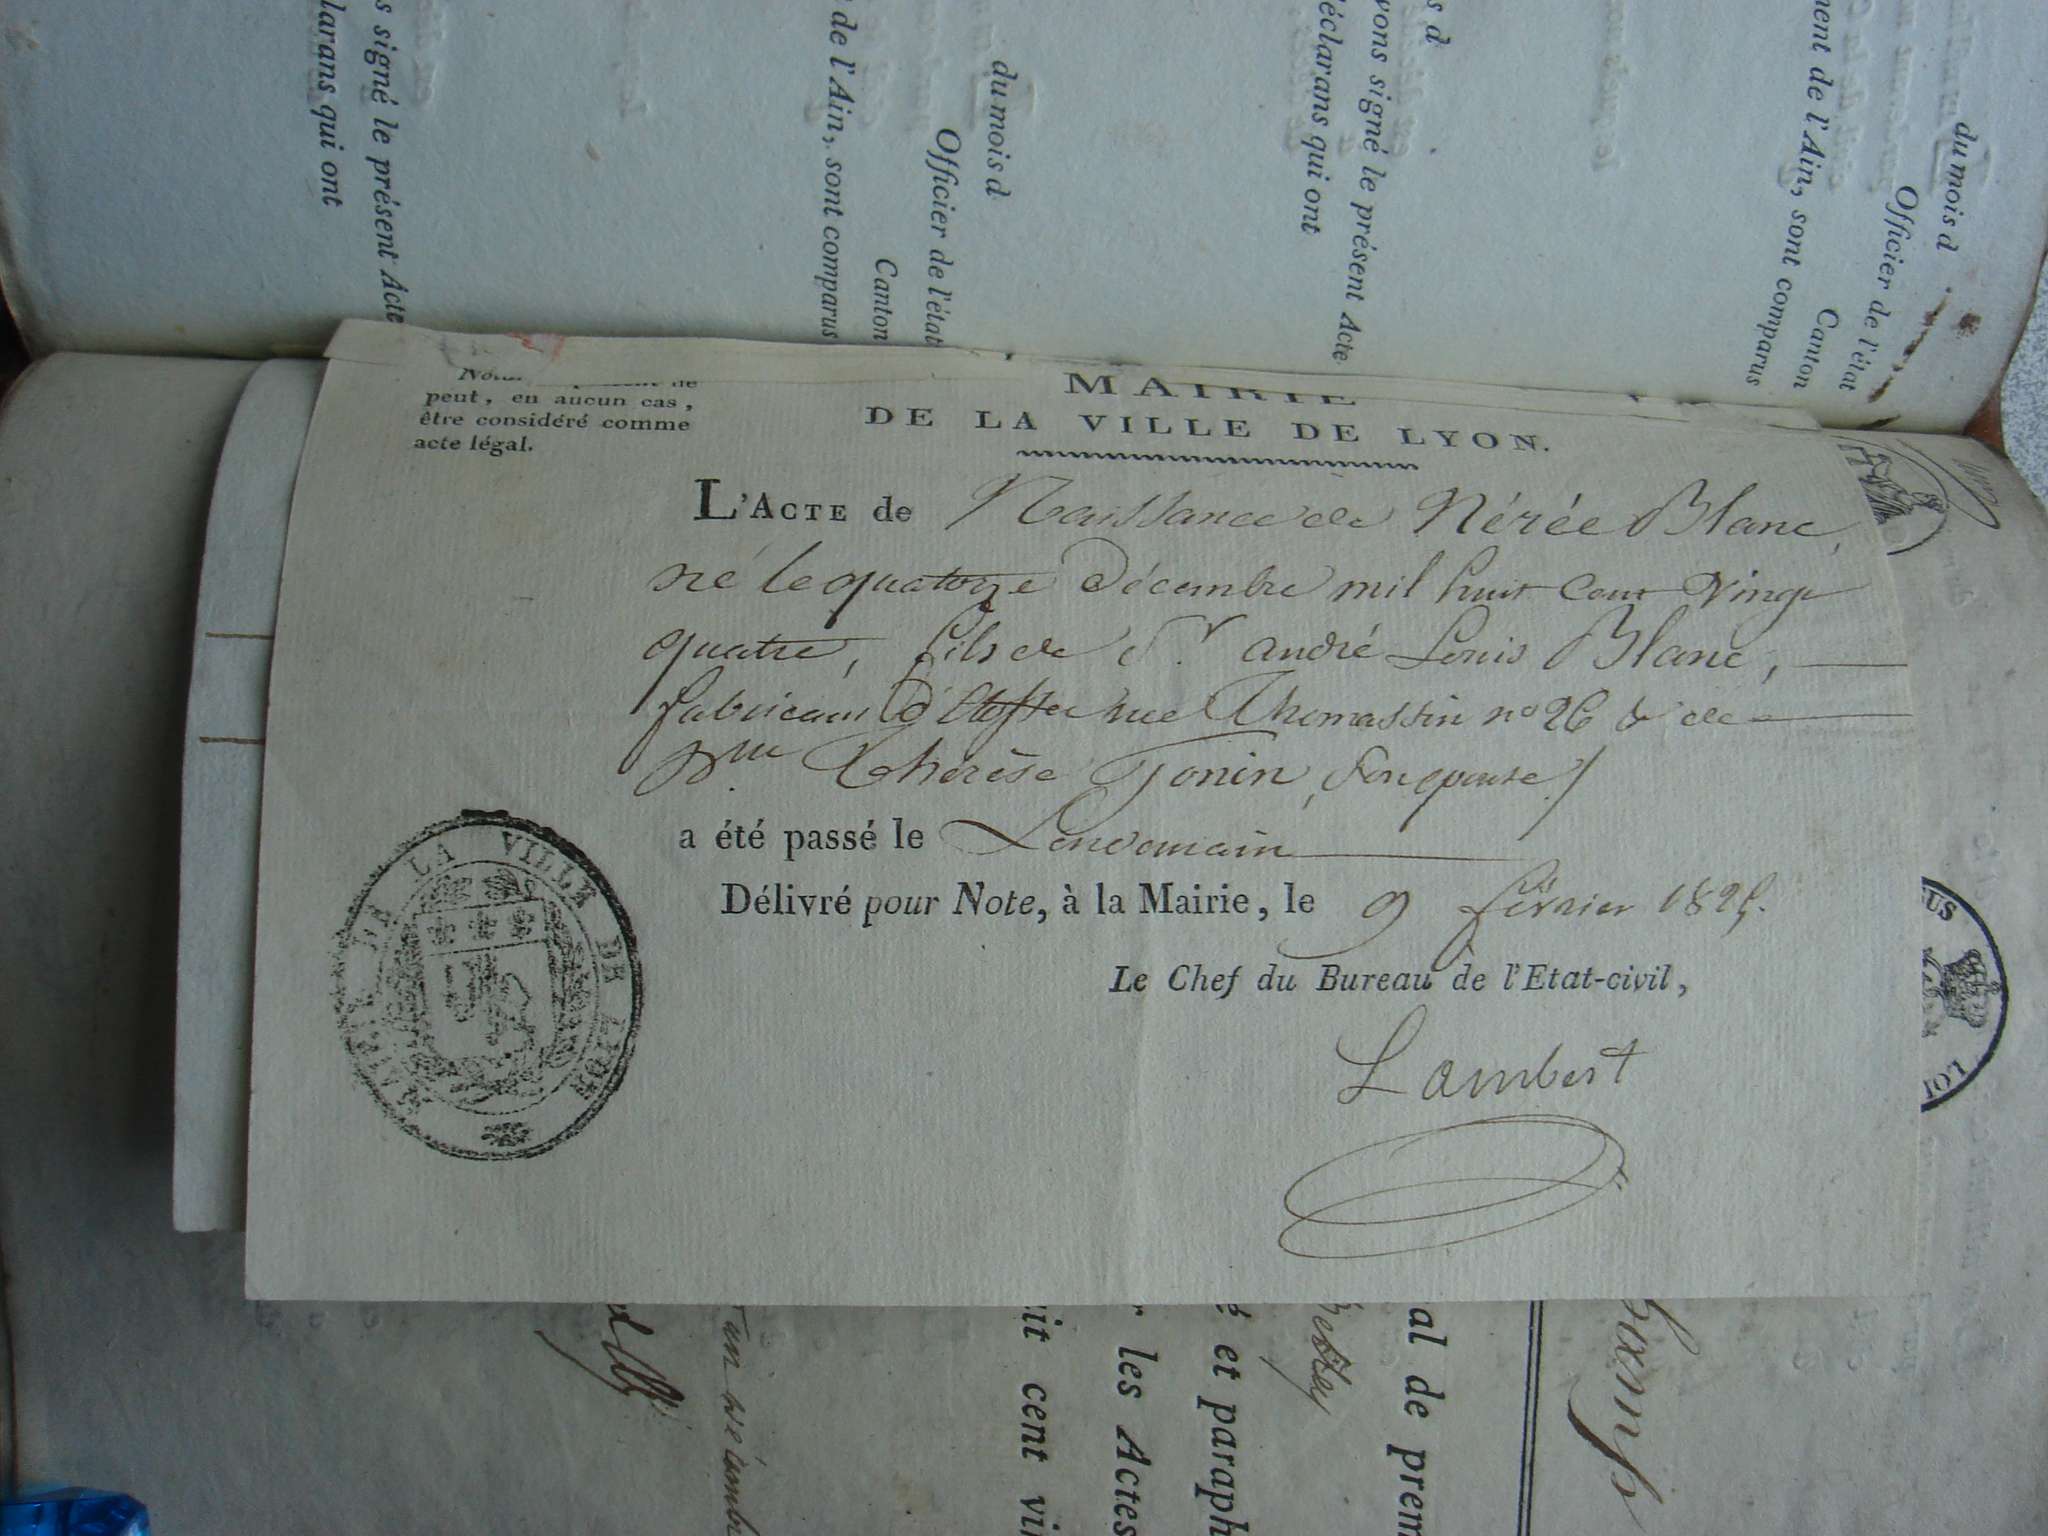 du mois d
Officier de l'état
Canton
de l'Ain, sont comparus
signé le présent Acte
larans qui ont
s d
vons signé le présent Acte
éclarans qui ont
du mois d
Officier de l'état
Canton
ment de l'Ain, sont comparus
peut, en aucun cas,
être considéré comme
acte légal.
MAIRIE
DE LA VILLE DE LYON.
L'ACTE de Naissance de Nérée Blanc,
né le quatorze Décembre mil huit Cent Vingt
quatre, fils de Sr. André Louis Blanc,
fabricant d'étoffes rue Thomassin n° 26 & de
Dme Thérèse Tonin, son épouse /
a été passé le Lendemain
Délivré pour Note, à la Mairie, le 9 février 1825.
Le Chef du Bureau de l'Etat-civil,
Lambert
MAIRIE DE LA VILLE DE LYON
al de prem
é et paraph
r les Actes
it cent vin